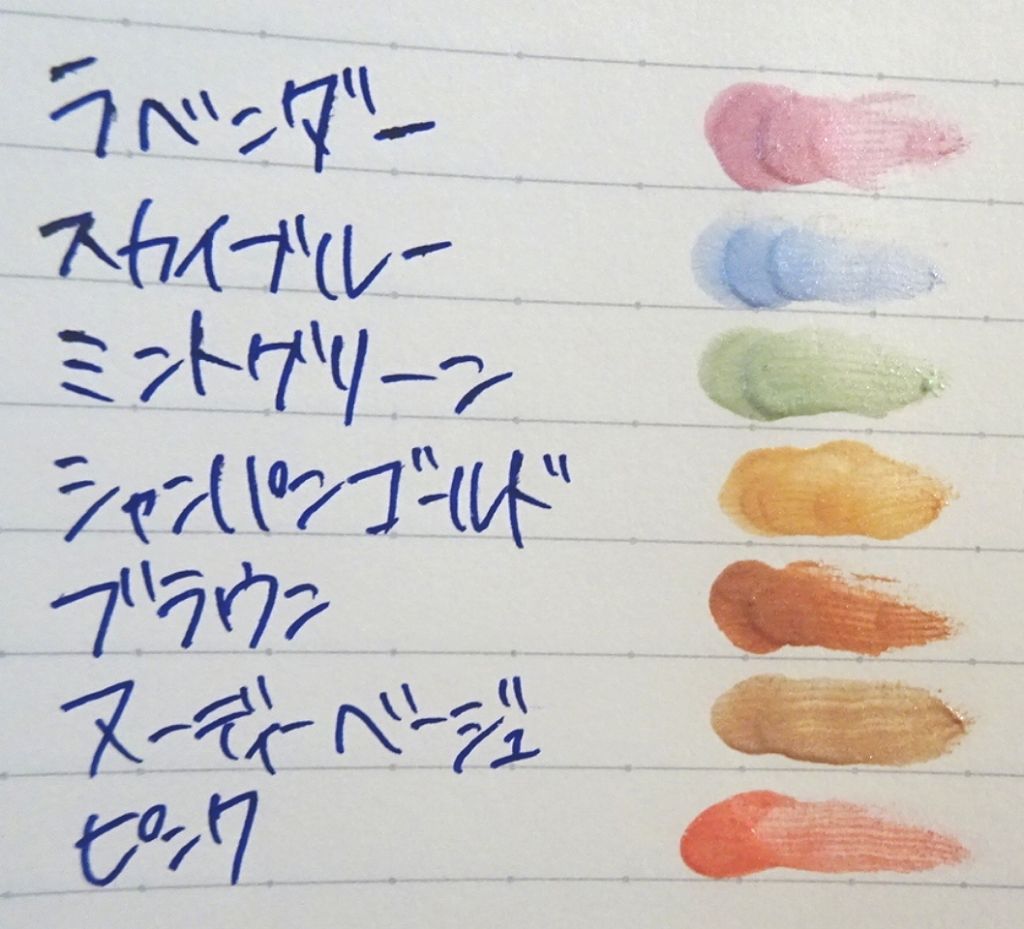 ラベンダー
スカイブルー
ミントグリーン
シャンパンゴールド
ブラウン
ヌーディーベージュ
ピンク